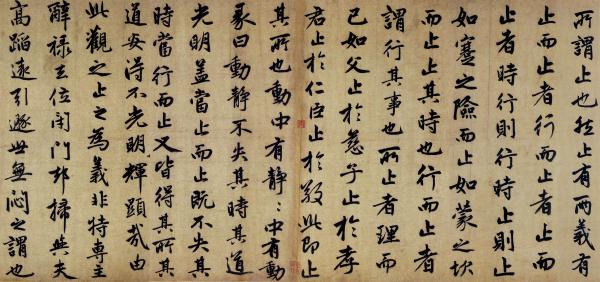 所謂止也然止有兩義有
止而止者行而止者止而
止者時行則行時止則止
如蹇之險而止如蒙之坎
而止止其時也行而止者
謂行其事也所止者理而
已如父止於慈子止於孝
君止於仁臣止於敬此即止
其所也動中有靜:中有動
彖曰動靜不失其時其道
光明蓋當止而止既不失其
時當行而止又皆得其所其
道安得不光明輝顯哉由
此觀之止之為義非特專主
辭祿去位閉門却掃與夫
高蹈遠引遯世無悶之謂也